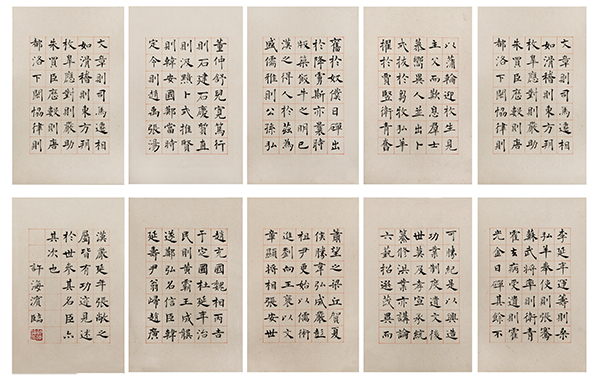 文章則司馬遷相
如滑稽則東方朔
枚皋應對則嚴助
朱買臣歷數則唐
都洛下閎協律則
以蒲輪迎枚生見
主父而歎息群士
慕嚮異人並出卜
式拔於芻牧弘羊
擢於賈豎衛青奮
奮於奴僕日磾出
於降虜斯亦曩時
版築飯牛之明已
漢之得人於茲為
盛儒雅則公孫弘
董仲舒兒寬篤行
則石建石慶質直
則汲黯卜式推賢
則韓安國鄭當時
定令則趙禹張湯
文章則司馬遷相
如滑稽則東方朔
枚皋應對則嚴助
朱買臣歷數則唐
都洛下閎協律則
李延年運籌則桑
弘羊奉使則張騫
蘇武將率則衛青
霍去病受遺則霍
光金日磾其餘不
可勝紀是以興造
功業制度遺文後
世莫及孝宣承統
纂修洪業亦講論
六藝招選茂異而
蕭望之梁丘賀夏
侯勝韋玄成嚴彭
祖尹更始以儒術
進劉向王褒以文
章顯將相張安世
趙充國魏相丙吉
于定國杜延年治
民則黃霸王成龔
遂鄭弘召信臣韓
延壽尹翁歸趙廣
漢嚴延年張敞之
屬皆有功迹見述
於世參其名臣亦
其次也
許海濱臨